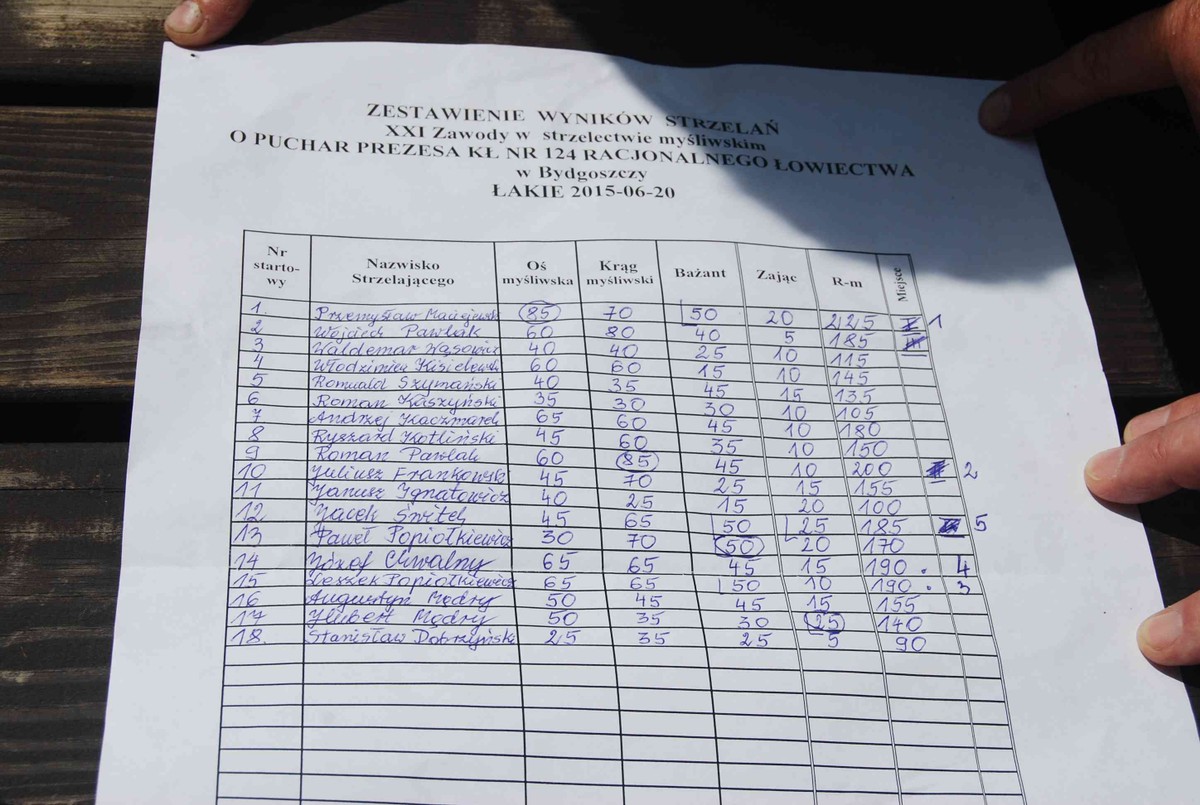 ZESTAWIENIE WYNIKÓW STRZELAŃ
XXI Zawody w strzelectwie myśliwskim
O PUCHAR PREZESA KŁ NR 124 RACJONALNEGO ŁOWIECTWA
w Bydgoszczy
ŁAKIE 2015-06-20
Nr startowy Nazwisko Strzelającego Oś myśliwska Krąg myśliwski Bażant Zając R-m Miejsce
1. Przemysław Maciejewski 85 70 50 20 225 I 1
2 Wojciech Pawlak 60 80 40 5 185
3 Waldemar Wąsowicz 40 40 25 10 115
4 Włodzimierz Kisielewski 60 60 15 10 145
5 Romuald Szymański 40 35 45 15 135
6 Roman Kaszyński 35 30 30 10 105
7 Andrzej Kaczmarek 65 60 45 10 180
8 Ryszard Kotliński 45 60 35 10 150
9 Roman Pawlak 60 85 45 10 200 2
10 Juliusz Frankowski 45 70 25 15 155
11 Janusz Ignatowicz 40 25 15 20 100
12 Jacek Świtek 45 65 50 25 185 5
13 Paweł Popiołkiewicz 30 70 50 20 170
14 Józef Chwalny 65 65 45 15 190. 4
15 Leszek Popiołkiewicz 65 65 50 10 190. 3
16 Augustyn Mądry 50 45 45 15 155
17 Hubert Mądry 50 35 30 25 140
18. Stanisław Dobrzyński 25 35 25 5 90